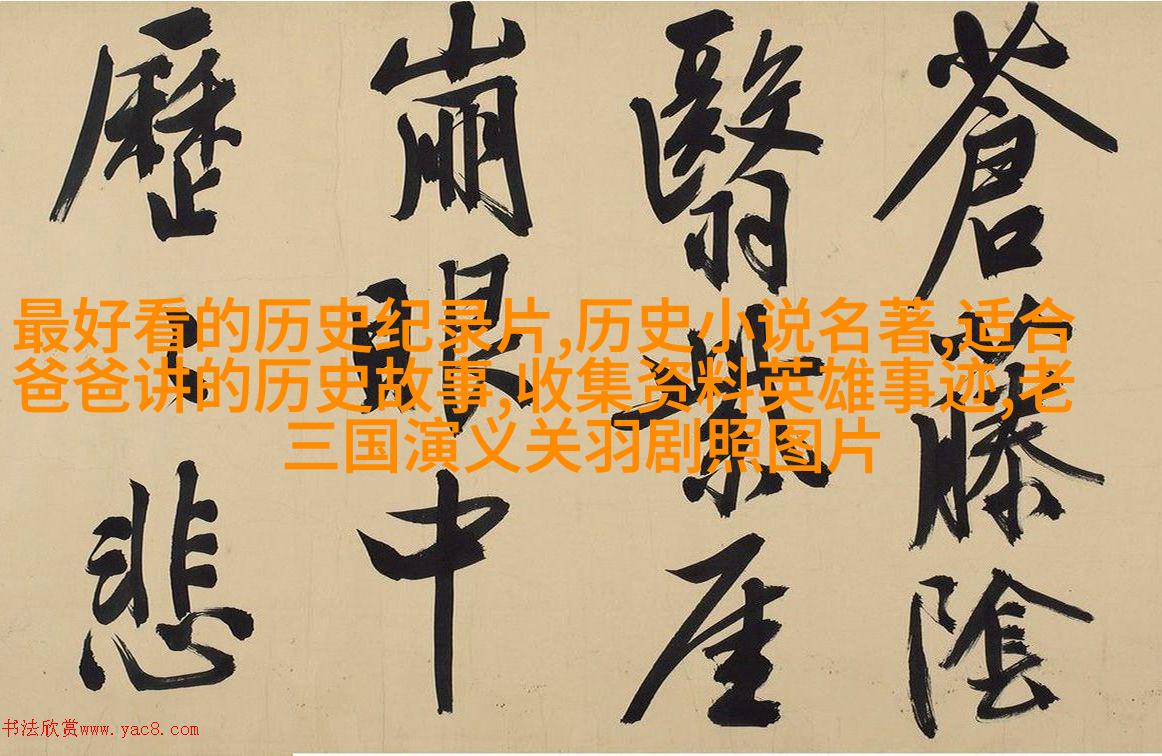 最好看的历史纪录片,历史小说名著,适合
爸爸讲的历史故事,收集资料英雄事迹,老
三国演义关羽剧照图片
蒼藤陰
翳厓
崩眼中
歷悲
书法欣赏www.yac8.com